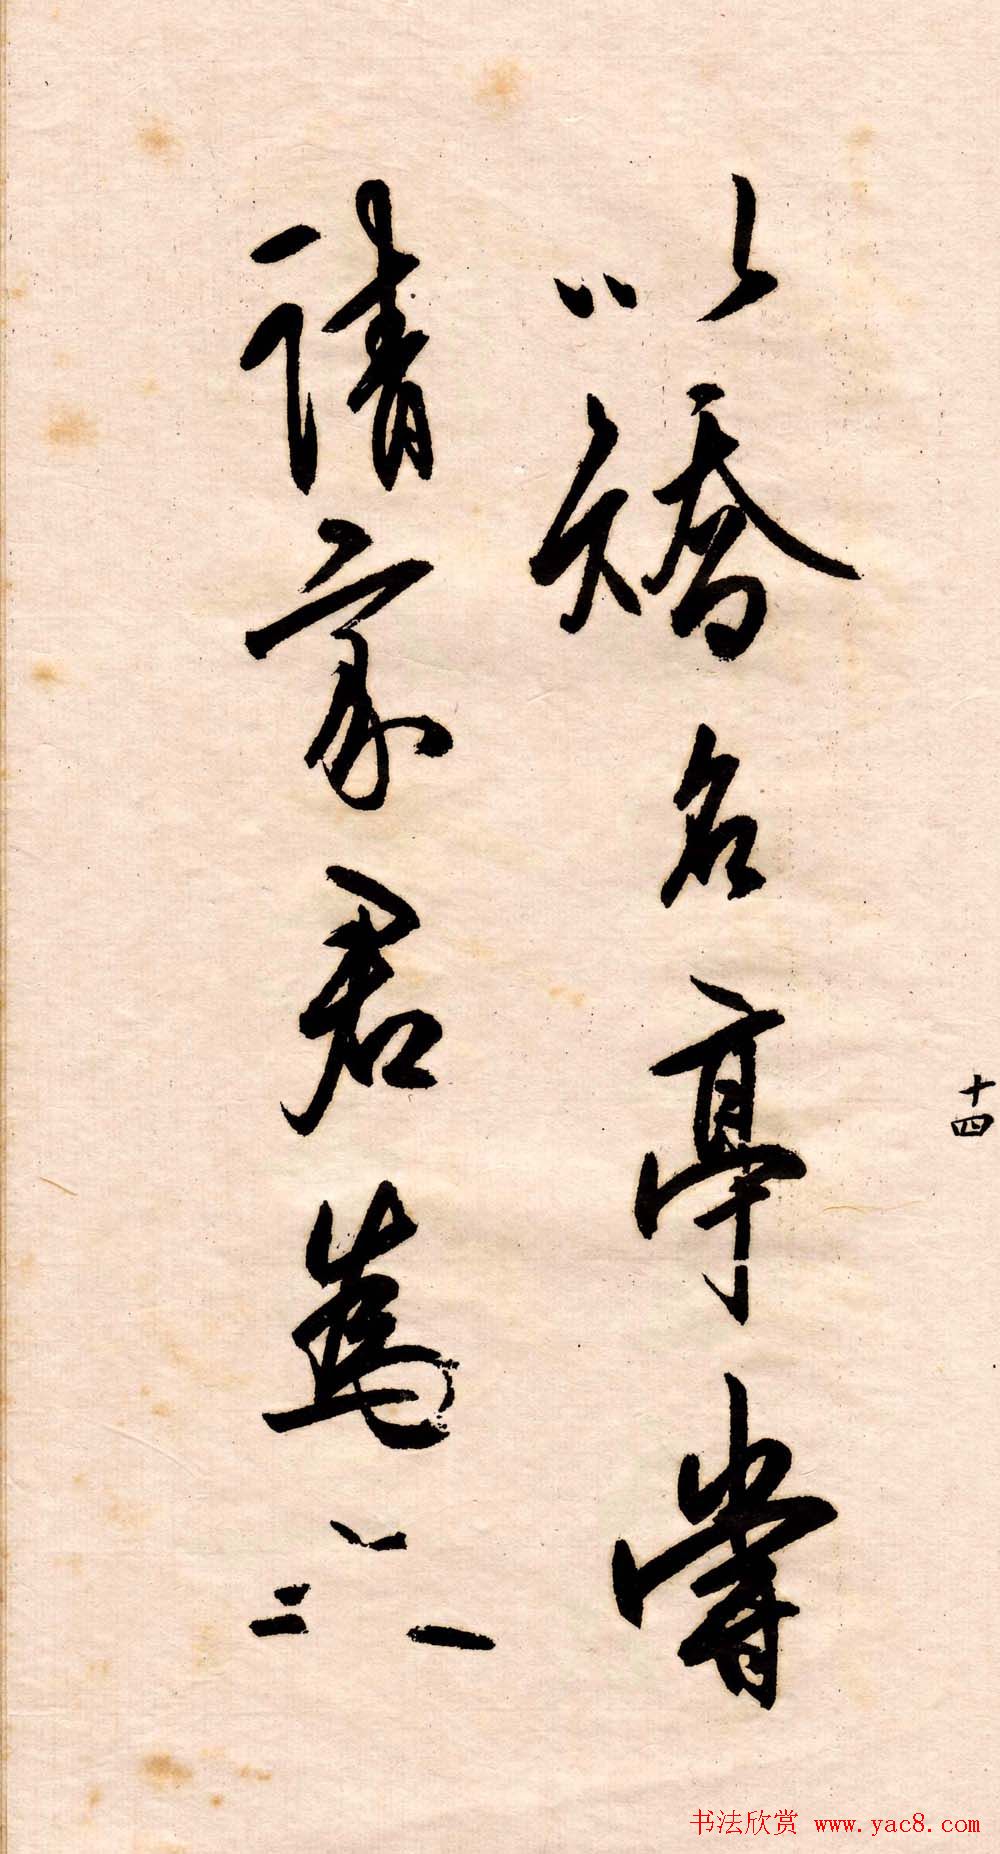 以矯名亭嘗
請家君為之
十四
书法欣赏 www.yac8.com